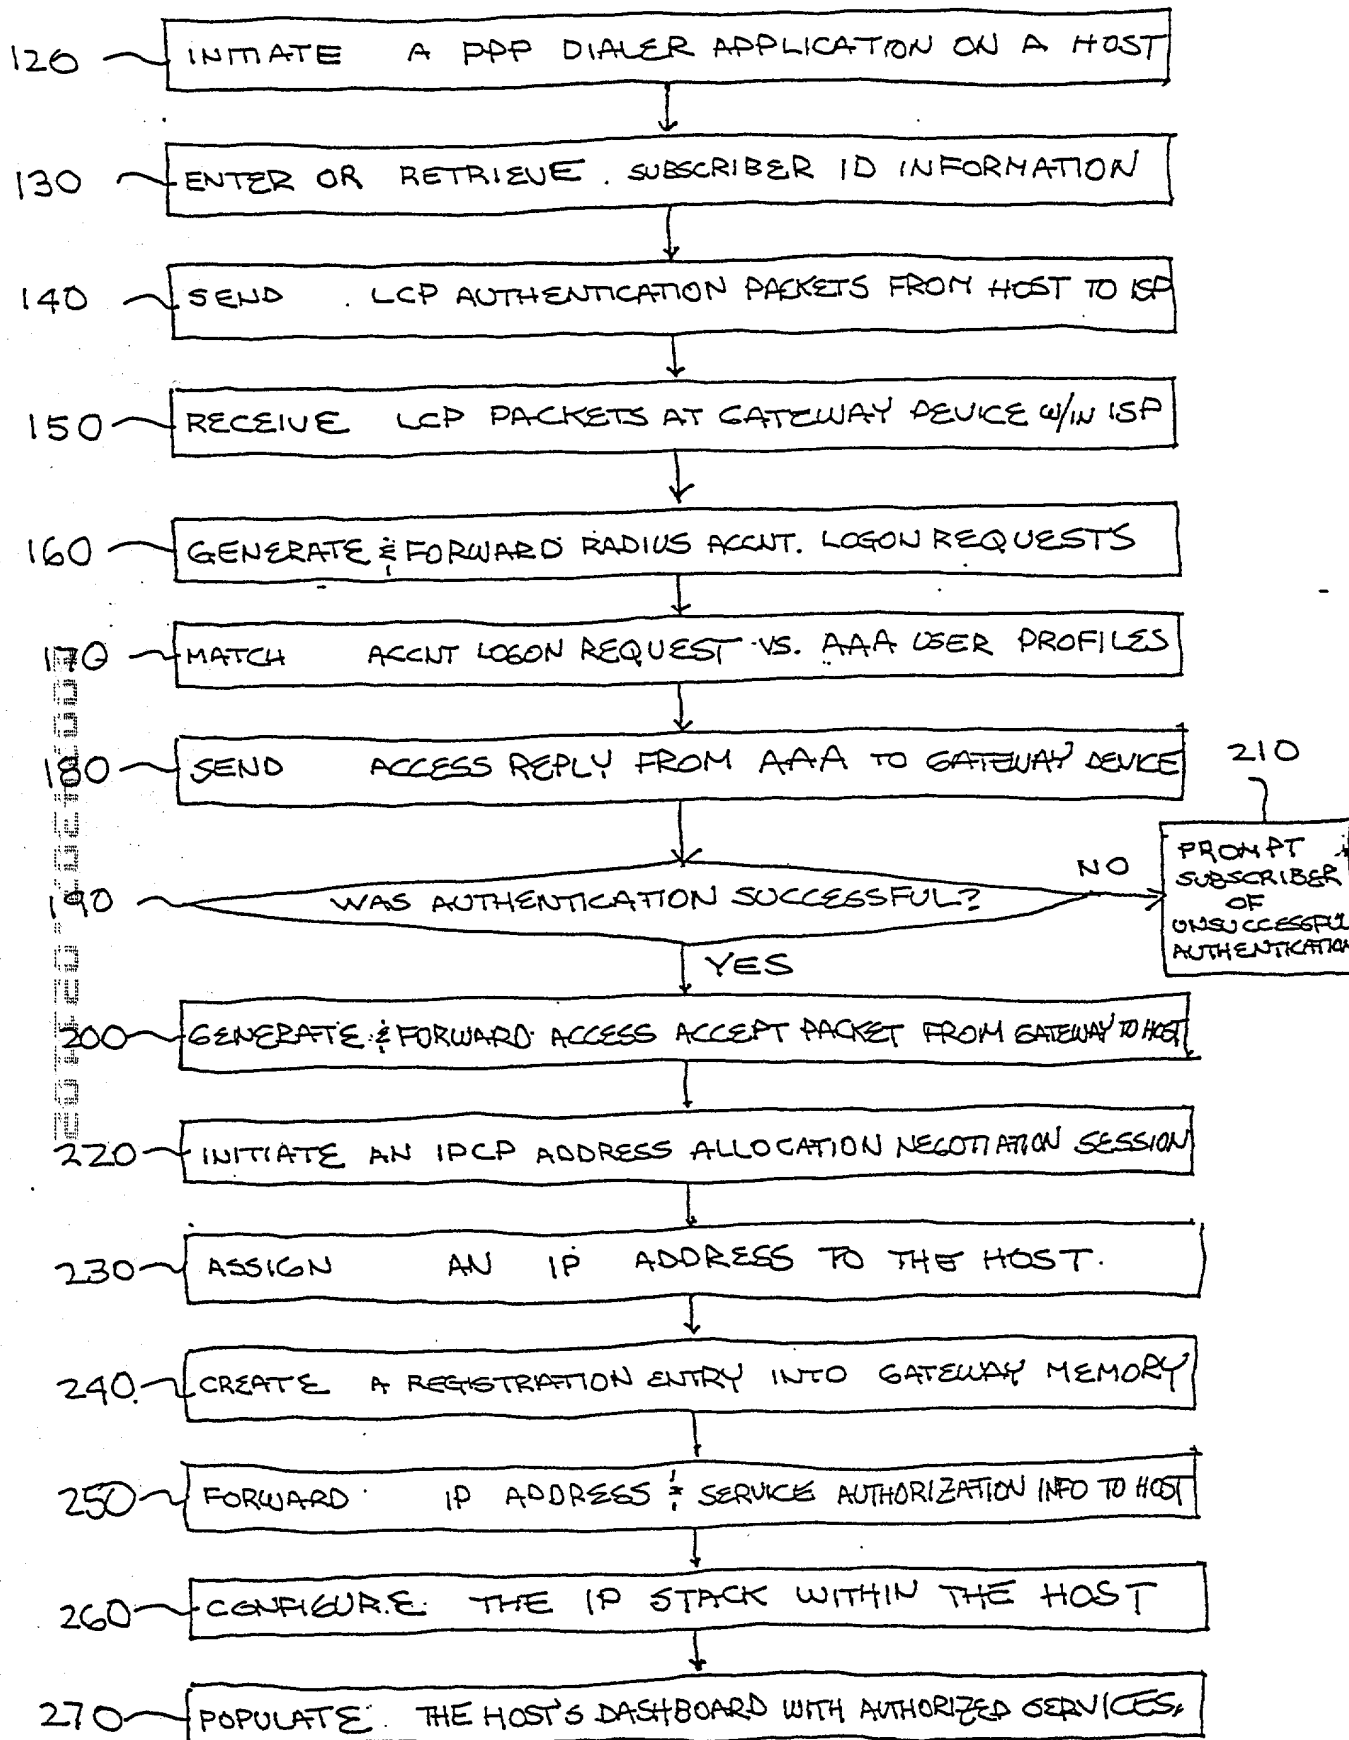 120 INITIATE A PPP DIALER APPLICATION ON A HOST
130 ENTER OR RETRIEVE SUBSCRIBER ID INFORMATION
140 SEND LCP AUTHENTICATION PACKETS FROM HOST TO ISP
150 RECEIVE LCP PACKETS AT GATEWAY DEVICE W/IN ISP
160 GENERATE & FORWARD RADIUS ACCNT. LOGON REQUESTS
170 MATCH ACCNT LOGON REQUEST VS. AAA USER PROFILES
180 SEND ACCESS REPLY FROM AAA TO GATEWAY DEVICE
210
PROMPT
SUBSCRIBER
OF
UNSUCCESSFUL
AUTHENTICATION
190 WAS AUTHENTICATION SUCCESSFUL?
NO
YES
200 GENERATE & FORWARD ACCESS ACCEPT PACKET FROM GATEWAY TO HOST
220 INITIATE AN IPCP ADDRESS ALLOCATION NEGOTIATION SESSION
230 ASSIGN AN IP ADDRESS TO THE HOST.
240 CREATE A REGISTRATION ENTRY INTO GATEWAY MEMORY
250 FORWARD IP ADDRESS & SERVICE AUTHORIZATION INFO TO HOST
260 CONFIGURE THE IP STACK WITHIN THE HOST
270 POPULATE THE HOST'S DASHBOARD WITH AUTHORIZED SERVICES.